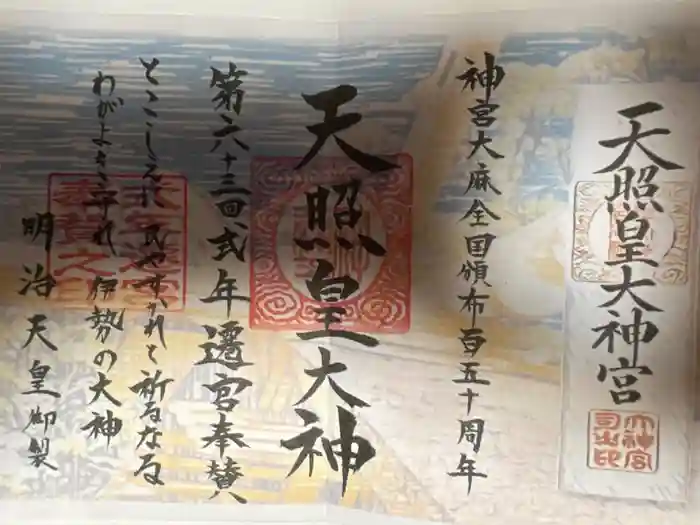 天照皇大神宮
大神宮司之印
神宮大麻全国頒布百五十周年
天照皇大神
第六十三回式年遷宮奉賛
とこしえに 民やすかれと祈るなる
わがよを守れ 伊勢の大神
明治天皇御製